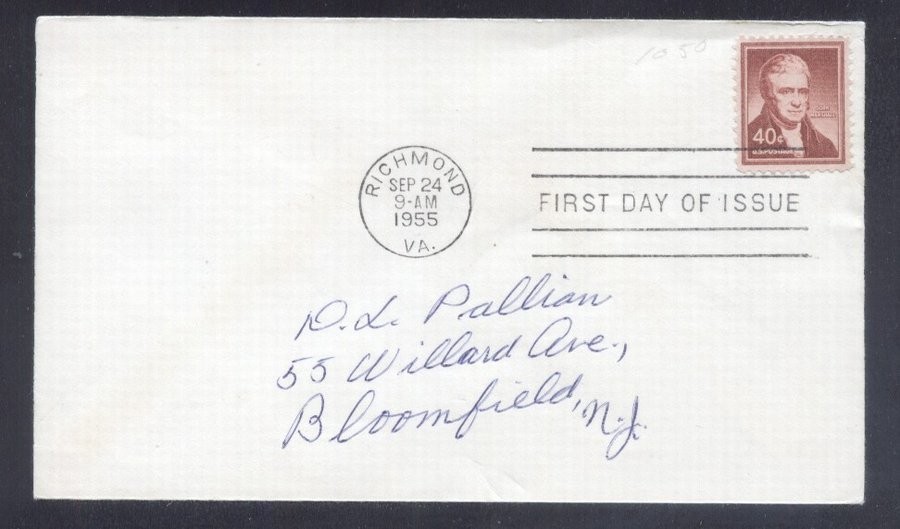 10 50
JOHN MARSHALL
40¢
U.S. POSTAGE
RICHMOND
SEP 24
9-AM
1955
VA.
FIRST DAY OF ISSUE
D. L. Pallian
55 Willard Ave.,
Bloomfield, N.J.